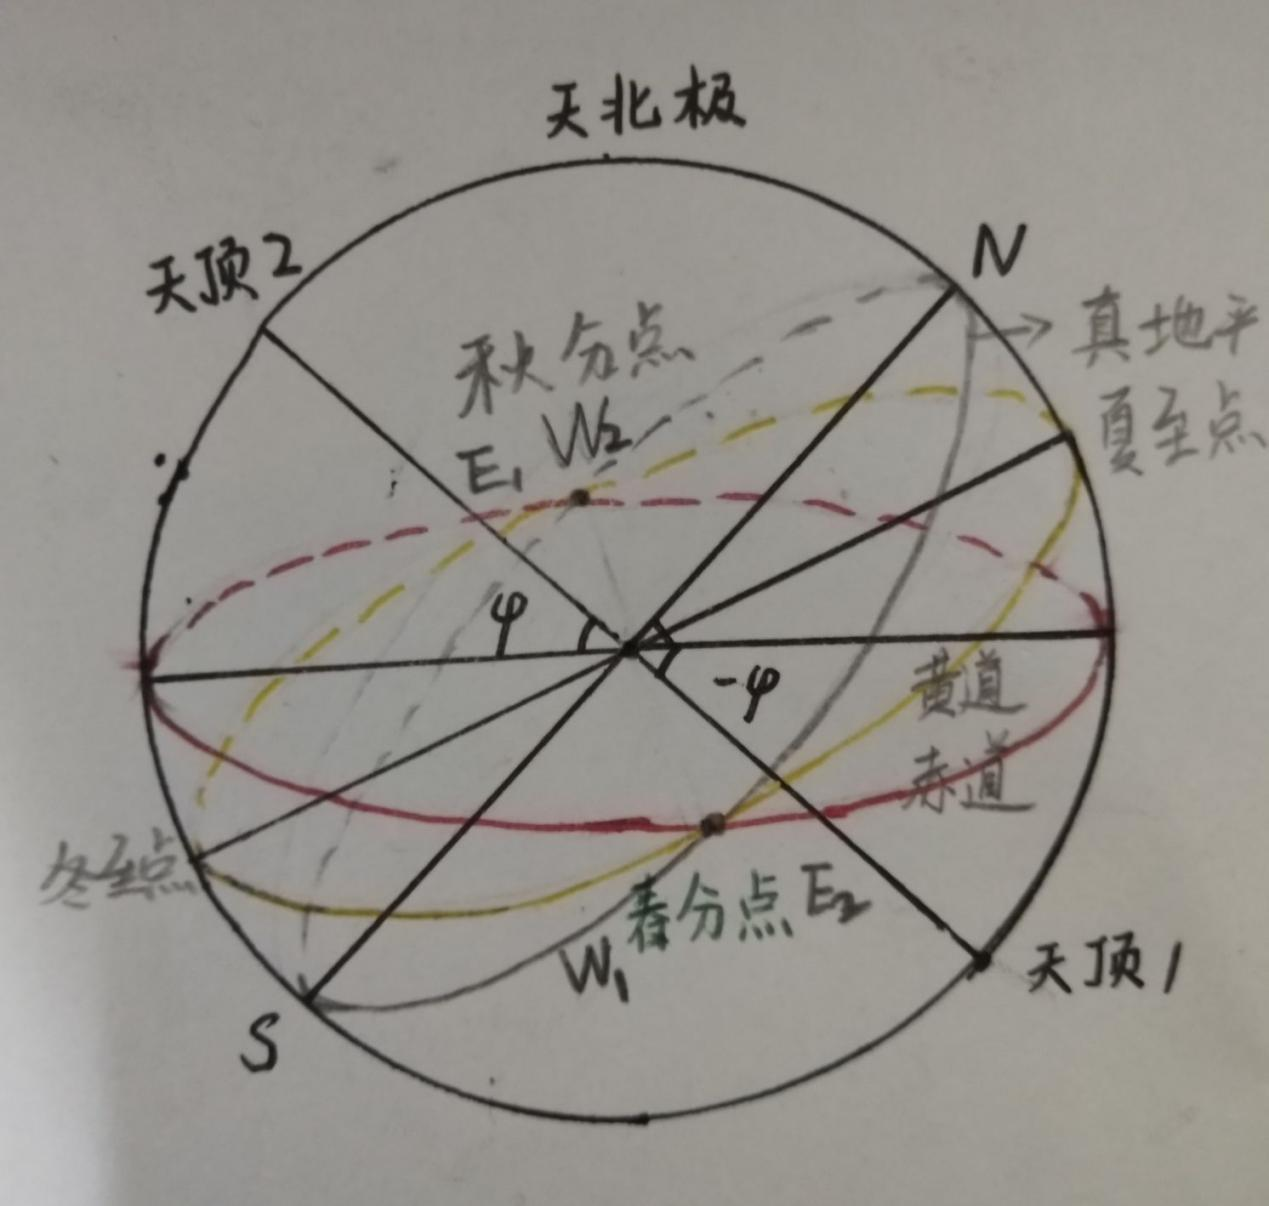 天北极
天顶2
N
真地平
秋分点
夏至点
E₁ W₂
φ
-φ
黄道
赤道
冬至点
春分点 E₂
W₁
天顶1
S